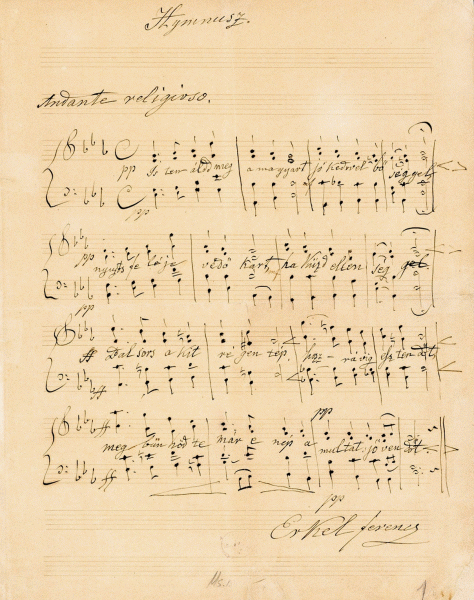 Hymnusz.
Andante religioso.
pp Isten áldd meg a magyart jó kedvvel bő séggel
pp
pp nyujts fe léje védő kart, ha küzd ellen ség gel
ff Bal sors a kit régen tép, hoz - rá víg esztendőt,
ff
ff pp
meg bűn hőd te már e nép a multat, jövendőt
ff
pp
Erkel Ferencz
1